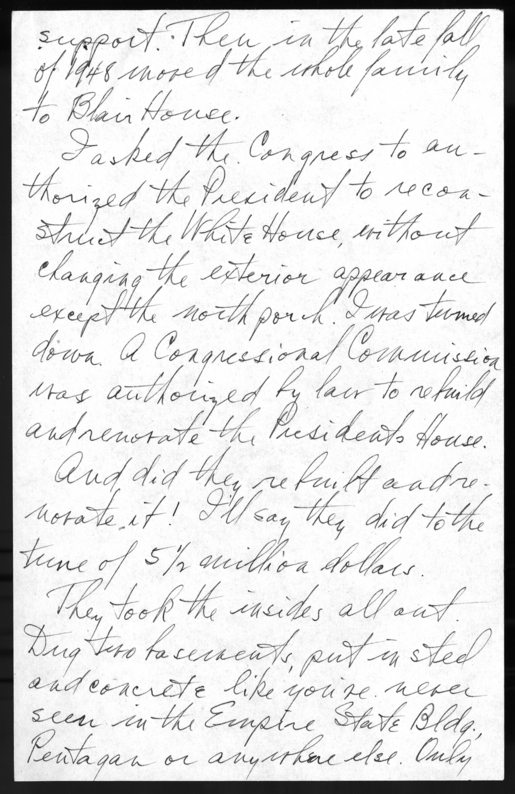 support. Then in the late fall
of 1948 moved the whole family
to Blair House.
I asked the Congress to au-
thorized the President to recon-
struct the White House, without
changing the exterior appearance
except the north porch. I was turned
down. A Congressional Commission
was authorized by law to rebuild
and renovate the Presidents House.
And did they rebuilt and re-
novate it! I'll say they did to the
tune of 5 1/2 million dollars.
They took the insides all out.
Dug two basements, put in steel
and concrete like you've never
seen in the Empire State Bldg,
Pentagan or anywhere else. Only